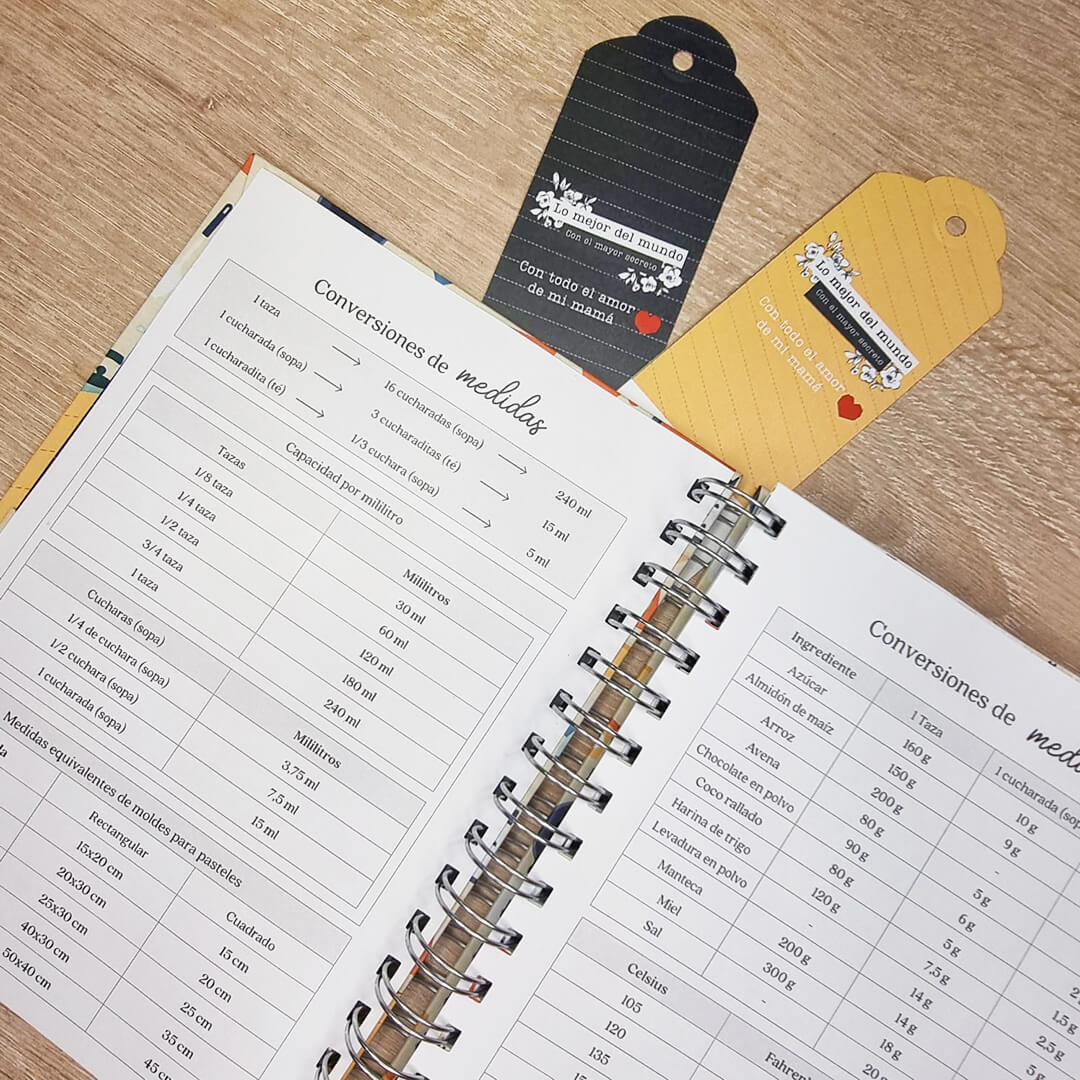 Lo mejor del mundo
Con el mayor secreto
Con todo el amor
de mi mamá
Lo mejor del mundo
Con el mayor secreto
Con todo el amor
de mi mamá
Conversiones de medidas
1 taza → 16 cucharadas (sopa) → 240 ml
1 cucharada (sopa) → 3 cucharaditas (té) → 15 ml
1 cucharadita (té) → 1/3 cuchara (sopa) → 5 ml
Capacidad por mililitro
Tazas Mililitros
1/8 taza 30 ml
1/4 taza 60 ml
1/2 taza 120 ml
3/4 taza 180 ml
1 taza 240 ml
Cucharas (sopa) Mililitros
1/4 de cuchara (sopa) 3,75 ml
1/2 cuchara (sopa) 7,5 ml
1 cucharada (sopa) 15 ml
Medidas equivalentes de moldes para pasteles
Rectangular Cuadrado
15x20 cm 15 cm
20x30 cm 20 cm
25x30 cm 25 cm
40x30 cm 35 cm
50x40 cm 45 cm
Conversiones de
Ingrediente 1 Taza 1 cucharada
Azúcar 160 g 10 g
Almidón de maíz 150 g 9 g
Arroz 200 g -
Avena 80 g 5 g
Chocolate en polvo 90 g 6 g
Coco rallado 80 g 5 g 1,5 g
Harina de trigo 120 g 7,5 g 2,5 g
Levadura en polvo - 14 g 5 g
Manteca 200 g 14 g
Miel 300 g 18 g
Sal - 20 g
Celsius
105
120
135